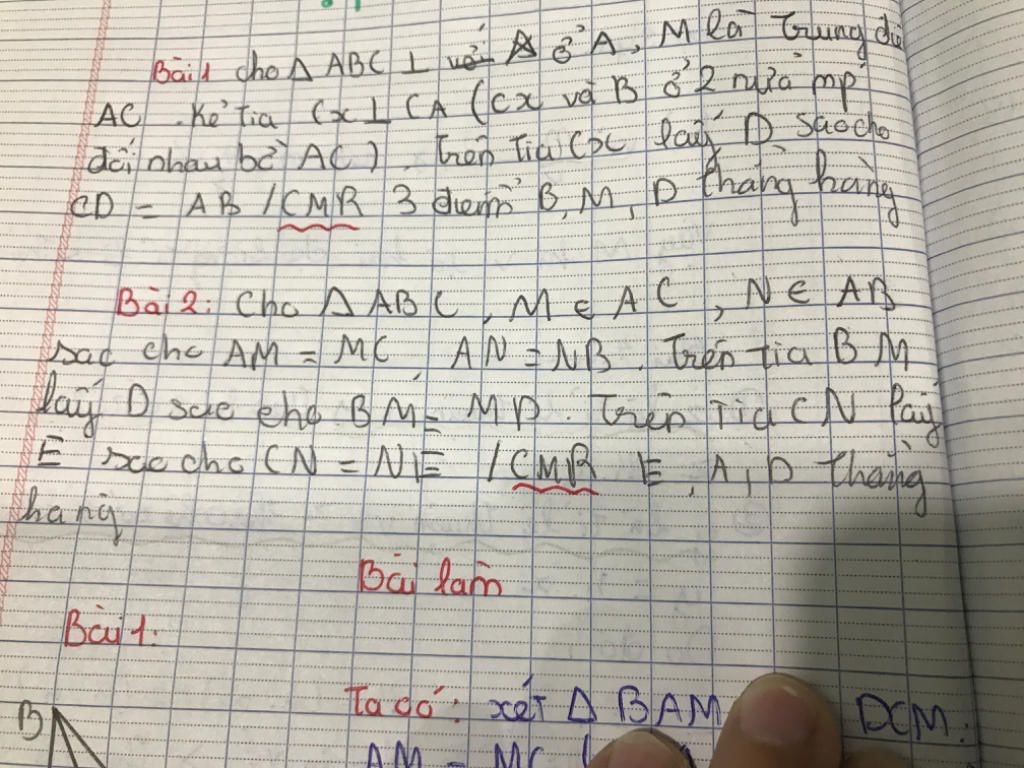 Bài 1 cho Δ ABC ⊥ ở A, M là trung điể
AC. Kẻ tia Cx ⊥ CA (Cx và B ở 2 nửa mp
đối nhau bờ AC). Trên tia Cx lấy D sao cho
CD = AB / CMR 3 điểm B, M, D thẳng hàng
Bài 2: Cho Δ ABC, M ∈ AC, N ∈ AB
sao cho AM = MC, AN = NB. Trên tia BM
lấy D sao cho BM = MD. Trên tia CN lấy
E sao cho CN = NE / CMR E, A, D thẳng
hàng
Bài làm
Bài 1:
Ta có: xét Δ BAM DCM.
B
AM = MC